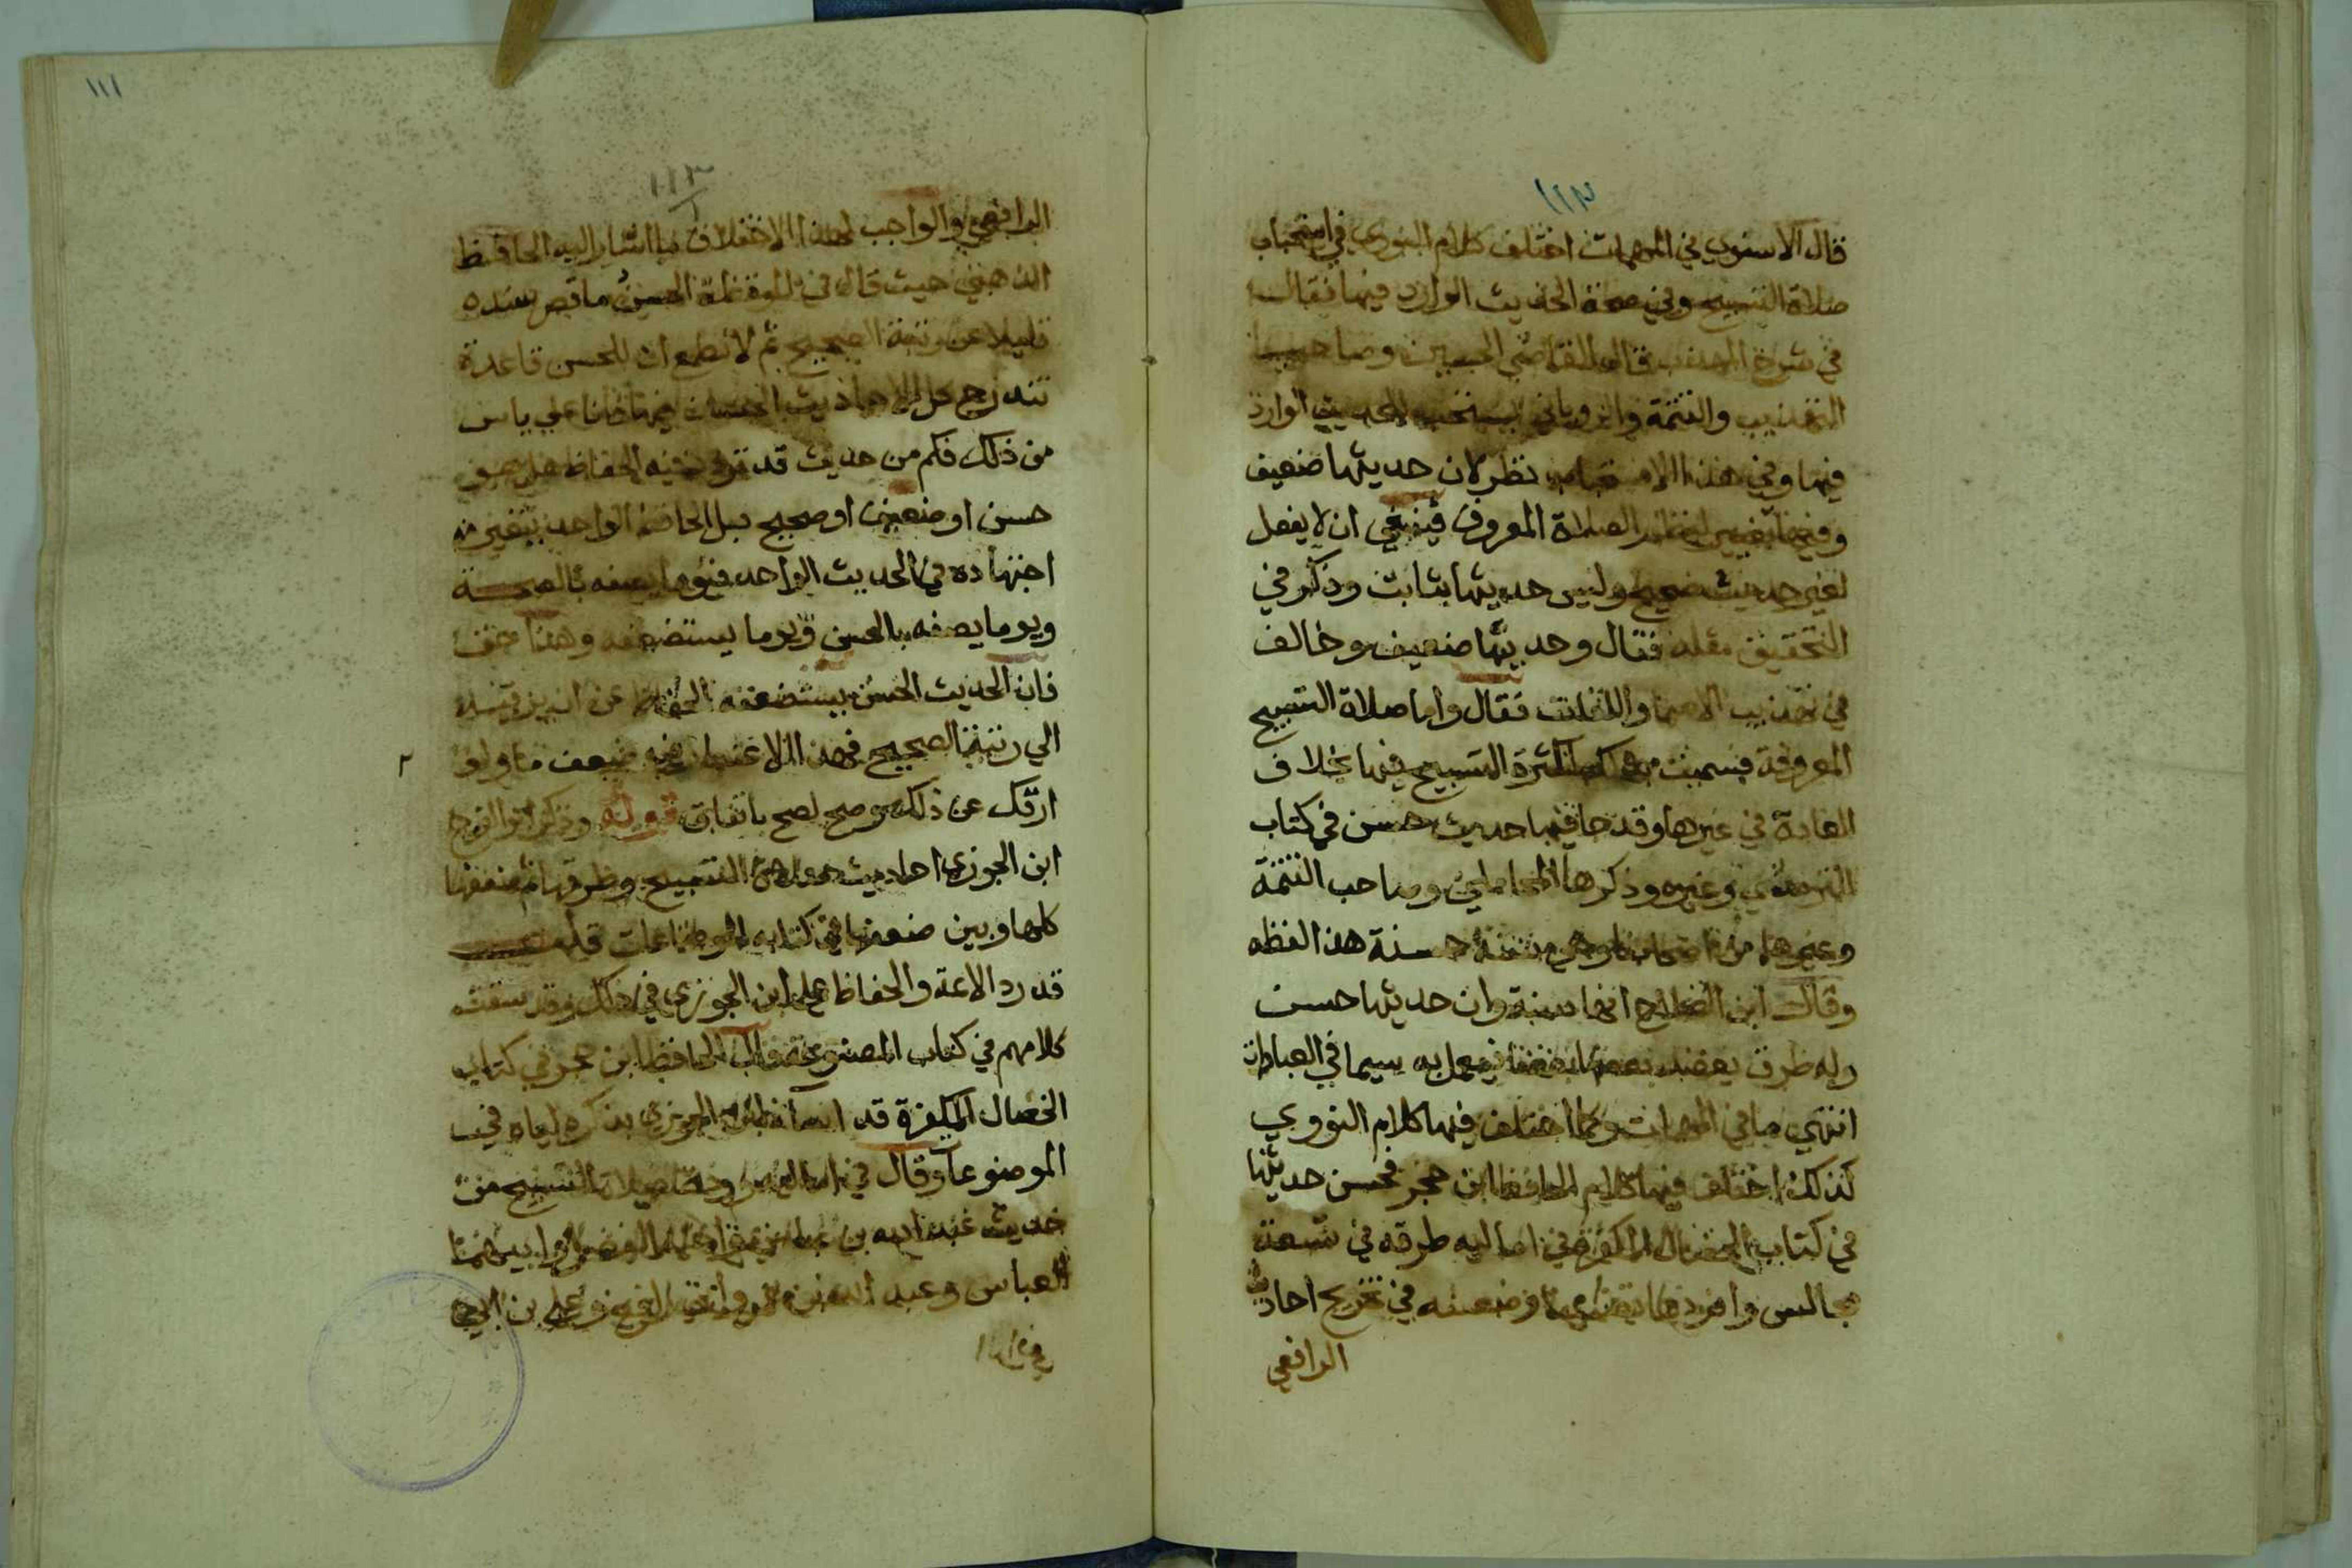 ١١٢
قال الاسنوي في المهمات اختلف كلام النووي في استحباب
صلاة التسبيح وفي صحة الحديث الوارد فيها فقال
في شرح المهذب قال القاضي الحسين وصاحب
التهذيب والتتمة والروياني يستحب للحديث الوارد
فيها وفي هذا الاستحباب نظر لان حديثها ضعيف
وفيها تغيير لنظم الصلاة المعروف فينبغي ان لا يفعل
لغير حديث صحيح وليس حديثها بثابت وذكر في
التحقيق مثله فقال وحديثها ضعيف وخالف
في تهذيب الاسما واللغات فقال واما صلاة التسبيح
المعروفة فسميت بذلك لكثرة التسبيح فيها بخلاف
العادة في غيرها وقد جا فيها حديث حسن في كتاب
الترمذي وغيره وذكرها المحاملي وصاحب التتمة
وغيرهما من اصحابنا وهي سنة حسنة هذا لفظه
وقال ابن الصلاح انها سنة وان حديثها حسن
وله طرق يعضد بعضها بعضا فيعمل به سيما في العبادات
انتهي ما في المهمات وكما اختلف فيها كلام النووي
كذلك اختلف فيها كلام الحافظ ابن حجر فحسن حديثها
في كتاب الخصال المكفرة في اماليه طرقه في تسعة
مجالس وافردها وضعفه في تخريج احاديث
الرافعي
١١١
١١٣
الرافعي والواجب لهذا الاختلاف ما اشار اليه الحافظ
الذهبي حيث قال في الموقظة الحسن ما قصر سنده
قليلا عن رتبة الصحيح ثم لا تطمع ان للحسن قاعدة
تندرج كل الاحاديث الحسان فيها فانا علي ياس
من ذلك فكم من حديث قد تردد فيه الحفاظ هل هو
حسن او ضعيف او صحيح بل الحافظ الواحد يتغير
اجتهاده في الحديث الواحد فيوما يصفه بالصحة
ويوما يصفه بالحسن ويوما يستضعفه وهذا حق
فان الحديث الحسن يستضعفه الحفاظ عن ان يرقيه
الي رتبة الصحيح فبهذا الاعتبار فيه ضعف ما ولو
انفك عن ذلك وصح لصح باتفاق قوله وذكر ابو الفرج
ابن الجوزي احاديث صلاة التسبيح وطرقها ثم ضعفها
كلها وبين ضعفها في كتابه الموضوعات قلت
قد رد الائمة والحفاظ علي ابن الجوزي في ذلك وقد سقت
كلامهم في كتاب المصنوعة وقال الحافظ ابن حجر في كتاب
الخصال المكفرة قد اساء ابن الجوزي بذكره اياه في
الموضوعا وقال في اماليه وردت صلاة التسبيح من
حديث عبد الله بن عباس واخيه الفضل وابيهما
العباس وعبد الله بن عمرو وابي رافع وعلي بن ابي